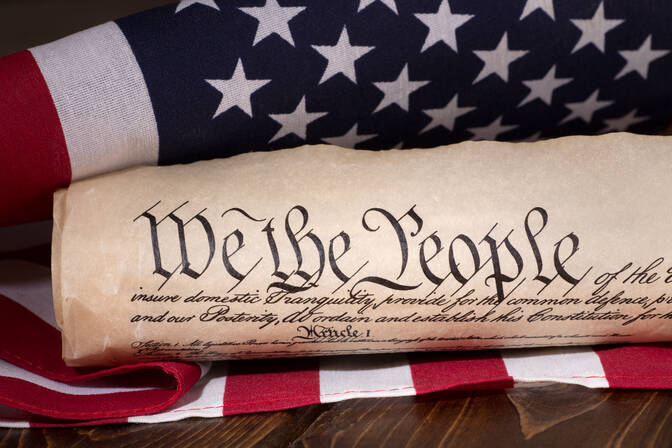 We the People of the
insure domestic Tranquility, provide for the common defence,
and our Posterity, do ordain and establish this Constitution for
Article I